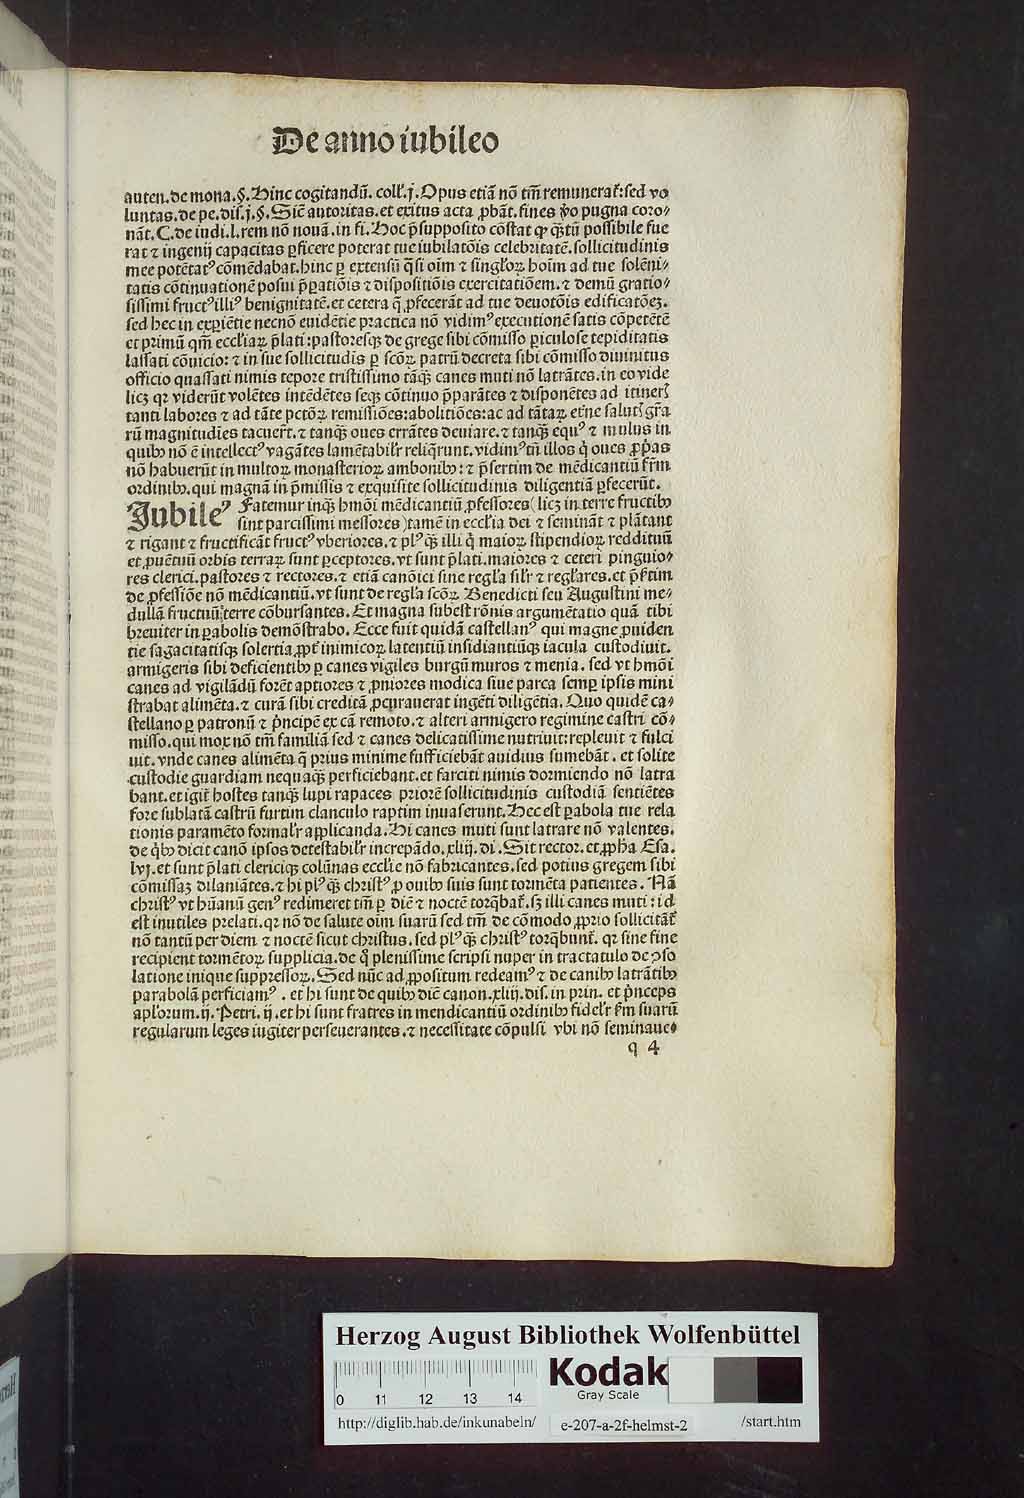 De anno iubileo
auten. de mona. §. Hinc cogitandū. coll'. j. Opus etiā nō tm̄ remunerat᷑: sed vo
luntas. de pe. dis. j. §. Sic̄ autoritas. et exitus acta ꝓbāt. fines ꝟo pugna coro⸗
nāt. C. de iudi. l. rem nō nouā. in fi. Hoc p̄supposito cōstat ꝙ q̄ꝫtū possibile fue
rat ⁊ ingenij capacitas ꝑficere poterat tue iubilatōis celebritatē. sollicitudinis
mee potētatꝰ cōmēdabat. hinc ꝑ extensū q̄si oīm ⁊ singl'oꝝ hoīm ad tue solēni⸗
tatis cōtinuationē posui p̄ꝑatiōis ⁊ dispositiōis exercitatiōem. ⁊ demū gratio⸗
sissimi fructꝰ illiꝰ benignitatē. et cetera q̄ ꝓfecerāt ad tue deuotōis edificatōeꝫ.
sed hec in exꝑiētie necnō euidētie practica nō vidimꝰ executionē satis cōpetētē
et primū qm̄ eccl'iaꝝ p̄lati: pastoresqꝫ de grege sibi cōmisso ꝑiculose tepiditatis
lassati cōuicio: ⁊ in sue sollicitudīs ꝑ scōꝝ patrū decreta sibi cōmisso diuinitus
officio quassati nimis tepore tristissimo tāq̄ꝫ canes muti nō latrātes. in eo vide
licꝫ qꝛ viderūt volētes intēdētes seqꝫ cōtinuo p̄parātes ⁊ disponētes ad itinerꝭ
tanti labores ⁊ ad tāte pctōꝝ remissiōes: abolitiōes: ac ad tātaꝝ et̄ne salutꝭ gr̄a
rū magnitudīes tacuerūt. ⁊ tanq̄ꝫ oues errātes deuiare. ⁊ tanq̄ꝫ equꝰ ⁊ mulus in
quibꝰ nō ē intellectꝰ vagātes lamētabilr̄ reliq̄runt. vidimꝰ tn̄ illos q̇ oues ꝓp̄as
nō habuerūt in multoꝝ monasterioꝝ ambonibꝰ: ⁊ p̄sertim de mēdicantiū fr̄m
ordinibꝰ. qui magnā in p̄missis ⁊ exquisite sollicitudinis diligentiā ꝑfecerūt.
Iubileꝰ Fatemur inq̄ꝫ hmōi mēdicantiū ꝓfessores (licꝫ in terre fructibꝰ
sint parcissimi messores) tamē in eccl'ia dei ⁊ semināt ⁊ plātant
⁊ rigant ⁊ fructificāt fructꝰ vberiores. ⁊ plꝰ q̄ꝫ illi q̇ maioꝝ stipendioꝝ reddituū
et ꝓuētuū orbis terraꝝ sunt ꝑceptores. vt sunt p̄lati. maiores ⁊ ceteri pinguio⸗
res clerici. pastores ⁊ rectores. ⁊ etiā canōici sine regl'a sil'r ⁊ regl'ares. et p̄s̄tim
de ꝓfessiōe nō mēdicantiū. vt sunt de regl'a scōꝝ Benedicti seu Augustini me⸗
dullā fructuū terre cōbursantes. Et magna subest rōnis argumētatio quā tibi
breuiter in ꝑabolis demōstrabo. Ecce fuit quidā castellanꝰ qui magne ꝓuiden
tie sagacitatisqꝫ solertia ꝓpt᷑ inimicoꝝ latentiū insidiantiūqꝫ iacula custodiuit.
armigeris sibi deficientibꝰ ꝑ canes vigiles burgū muros ⁊ menia. sed vt hmōi
canes ad vigilādū forēt aptiores ⁊ ꝓniores modica siue parca semꝑ ipsis mini
strabat alimēta. ⁊ curā sibi creditā ꝓcurauerat ingēti diligētia. Quo quidē ca⸗
stellano ꝑ patronū ⁊ ṗncipē ex cā remoto. ⁊ alteri armigero regimine castri cō⸗
misso. qui mox nō tm̄ familiā sed ⁊ canes delicatissime nutriuit: repleuit ⁊ fulci
uit. vnde canes alimēta q̄ prius minime sufficiebāt auidius sumebāt. et solite
custodie guardiam nequaq̄ꝫ perficiebant. et farciti nimis dormiendo nō latra
bant. et igit᷑ hostes tanq̄ꝫ lupi rapaces priorē sollicitudinis custodiā sentiētes
fore sublatā castrū furtim clanculo raptim inuaserunt. Hec est ꝑabola tue rela
tionis paramēto formal'r applicanda. Hi canes muti sunt latrare nō valentes.
de q̇bꝰ dicit canō ipsos detestabil'r increpādo. xliij. di. Sit rector. et ꝓph̄a Esa.
lvj. et sunt p̄lati clericiqꝫ colūnas eccl'ie nō fabricantes. sed potius gregem sibi
cōmissaꝫ dilaniātes. ⁊ hi plꝰ q̄ꝫ christꝰ ꝓ ouibꝰ suis sunt tormēta patientes. Nā
christꝰ vt hūanū genꝰ redimeret tm̄ ꝑ diē ⁊ noctē torq̄bat᷑. sꝫ illi canes muti: id
est inutiles prelati. qꝛ nō de salute oīm suarū sed tm̄ de cōmodo ꝓprio sollicitāt᷑
nō tantū per diem ⁊ noctē sicut christus. sed plꝰ q̄ꝫ christꝰ torq̄bunt᷑. qꝛ sine fine
recipient tormētoꝝ supplicia. de q̊ plenissime scripsi nuper in tractatulo de ꝯso
latione inique suppressoꝝ. Sed nūc ad ꝓpositum redeamꝰ ⁊ de canibꝰ latrātibꝰ
parabolā perficiamꝰ. et hi sunt de quibꝰ dic̄ canon. xliij. dis. in prin. et ṗnceps
apl'orum. ij. Petri. ij. et hi sunt fratres in mendicantiū ordinibꝰ fidel'r s̄m suarū
regularum leges iugiter perseuerantes. ⁊ necessitate cōpulsi vbi nō seminaue⸗
q 4
Herzog August Bibliothek Wolfenbüttel
0 11 12 13 14
Kodak
Gray Scale
http://diglib.hab.de/inkunabeln/ e-207-a-2f-helmst-2 /start.htm